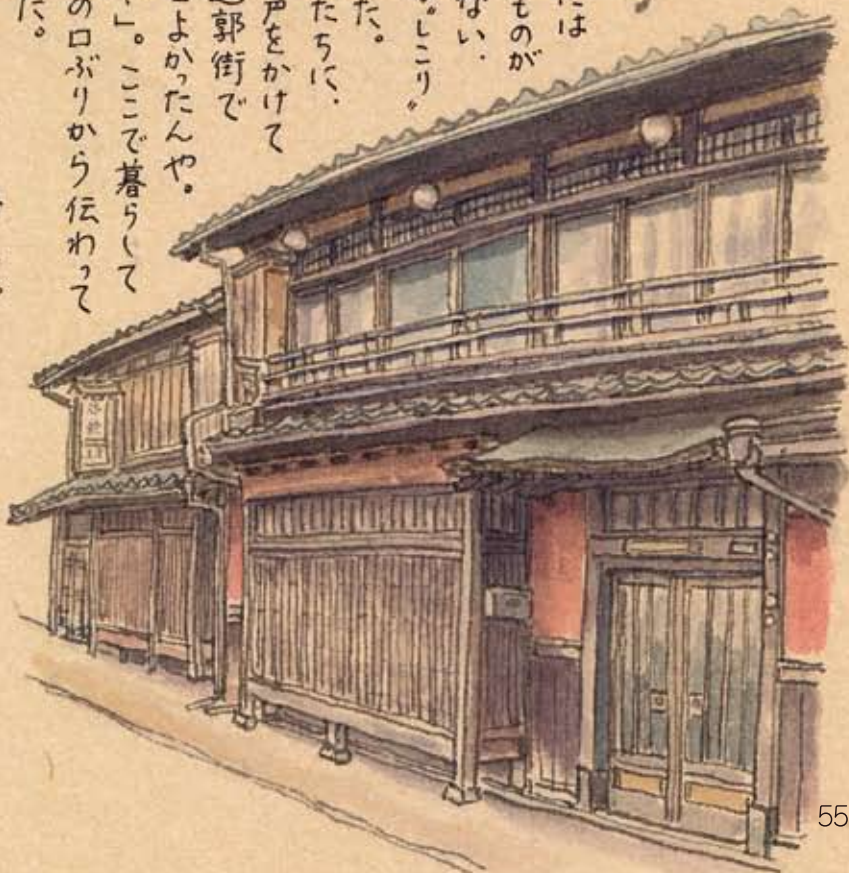 には
ものが
ない、
〝しこり〟
た。
たちに、
声をかけて
遊郭街で
よかったんや。
」。ここで暮らして
の口ぶりから伝わって
た。
55